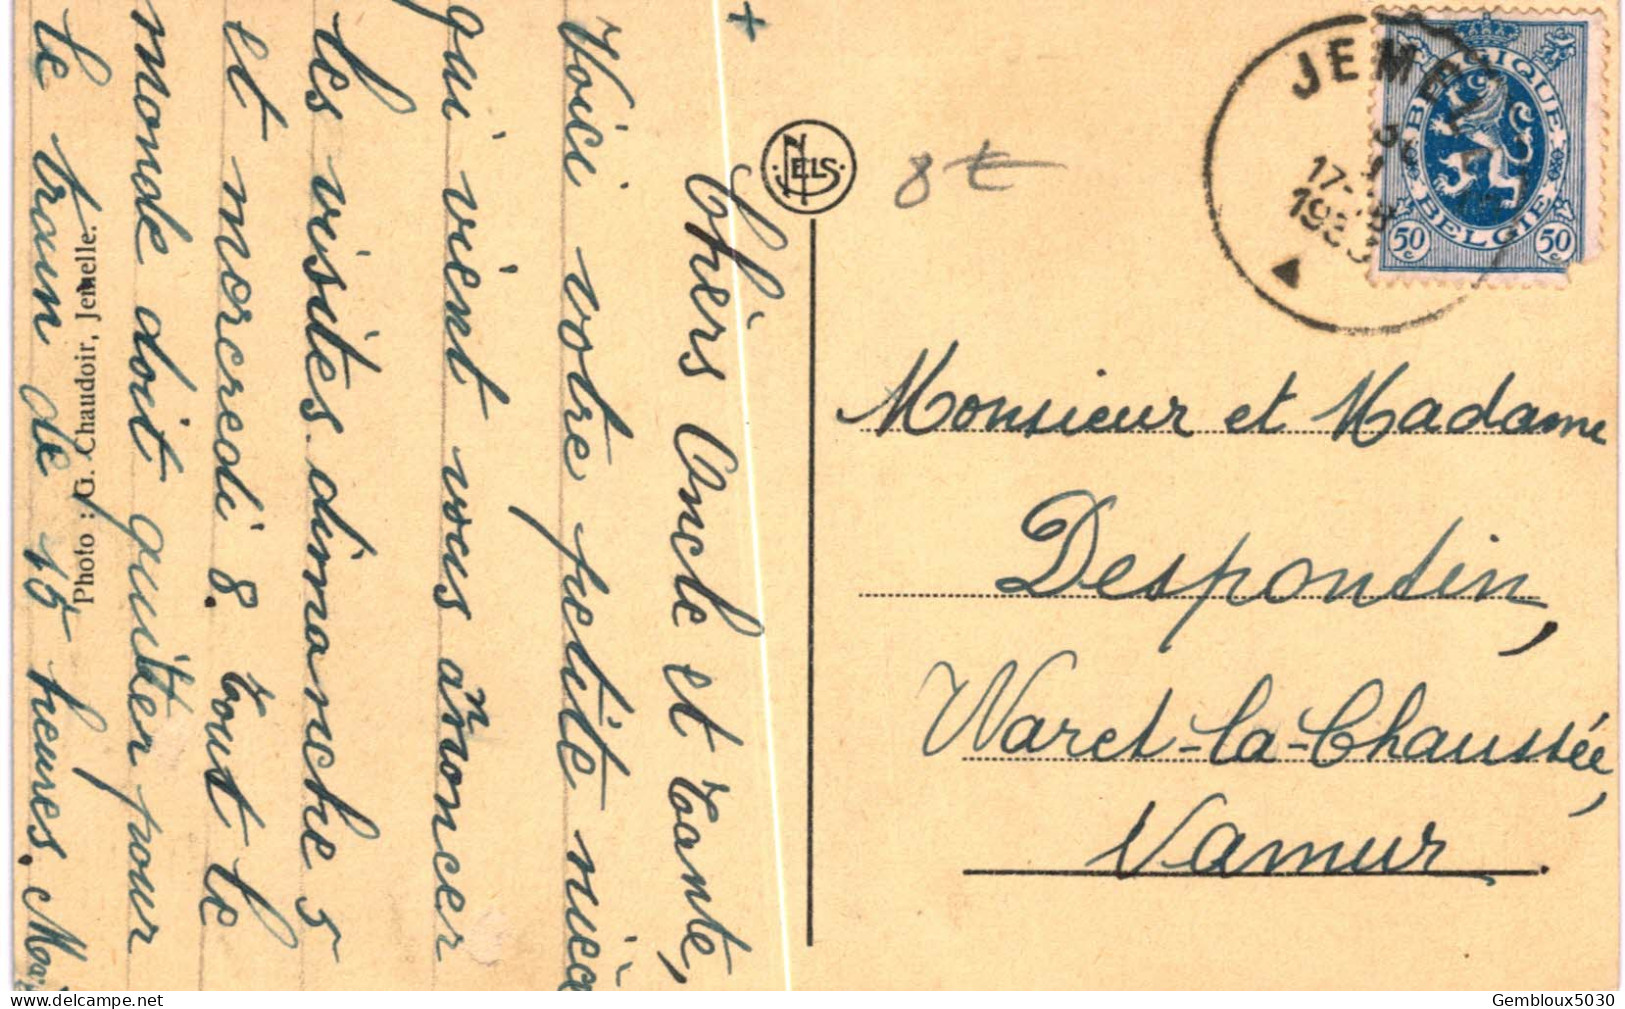 Chèrs Oncle et Tante,
Voici votre petite nièce
qui vient vous annoncer
les visites dimanche 5
et mercredi 8. Tout le
monde doit quitter pour
le train de 15 heures.
Photo : G. Chaudoir, Jemelle.
NELS
8 €
JEMELLE
17-18
BELGIQUE
BELGIE
50c 50c
Monsieur et Madame
Despontin,
Waret-la-Chaussée,
Namur.
delcampe.net
Gembloux5030